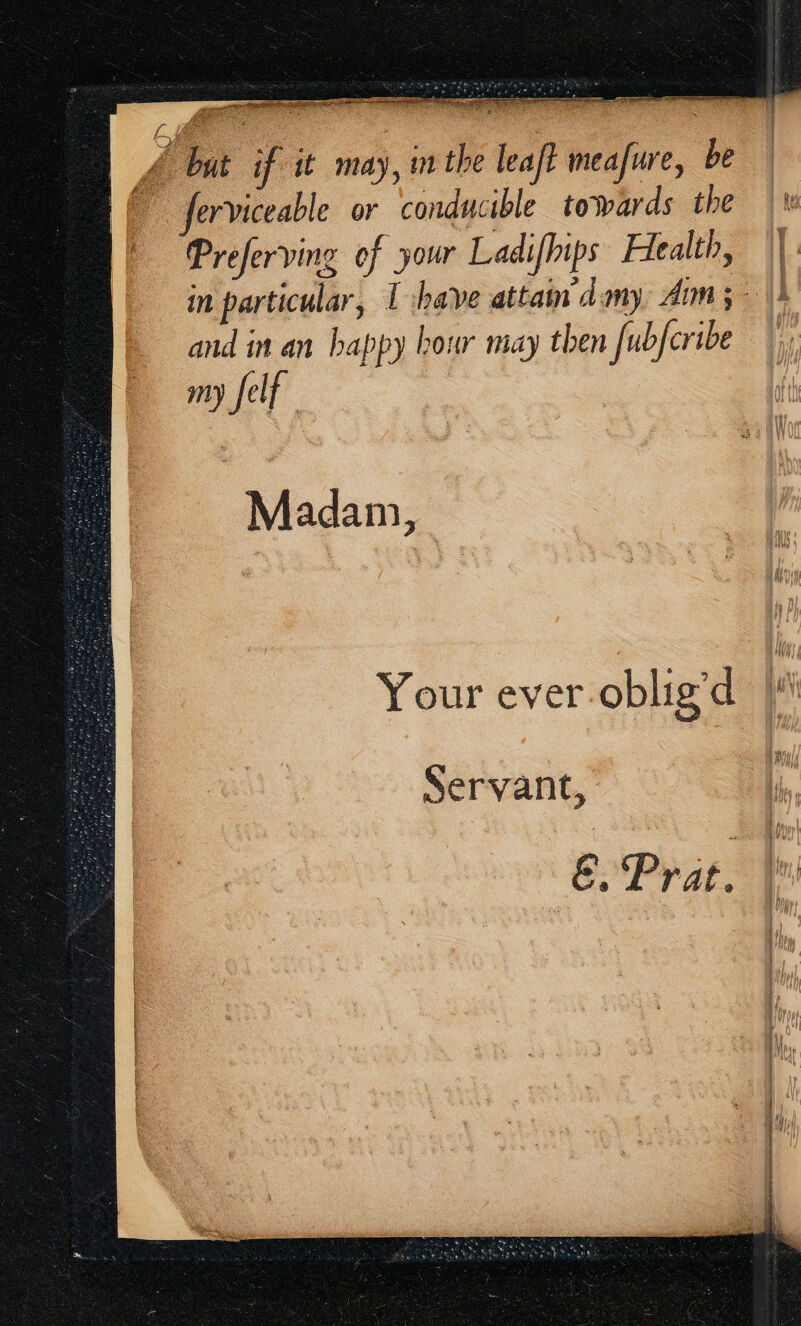 but if it may, in the leaſt meaſure, be
ſerviceable or conducible towards the
Preſerving of your Ladiſhips Health,
in particular, I have attain'd my Aim;
and in an happy hour may then ſubſcribe
my ſelf
Madam,
Your ever oblig'd
Servant,
E. Prat.